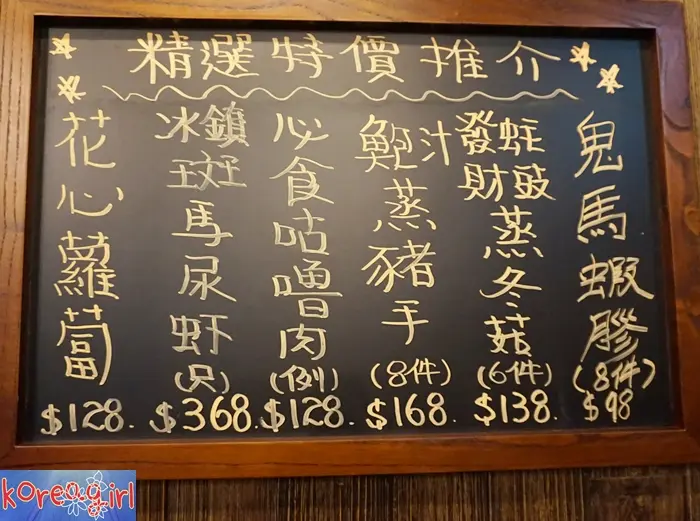 精選特價推介
花心蘿蔔
$128.
冰鎮斑馬尿虾
(只)
$368.
必食咕嚕肉
(例)
$128.
鮑汁蒸豬手
(8件)
$168.
發財蚝豉蒸冬菇
(6件)
$138.
鬼馬蝦膠
(8件)
$98
koreagirl